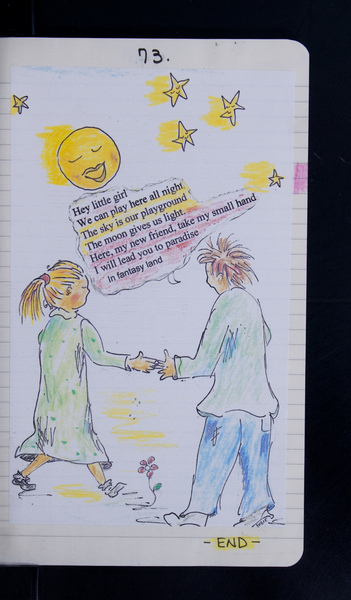 73.
Hey little girl
We can play here all night
The sky is our playground
The moon gives us light.
Here, my new friend, take my small hand
I will lead you to paradise
in fantasy land
- END -